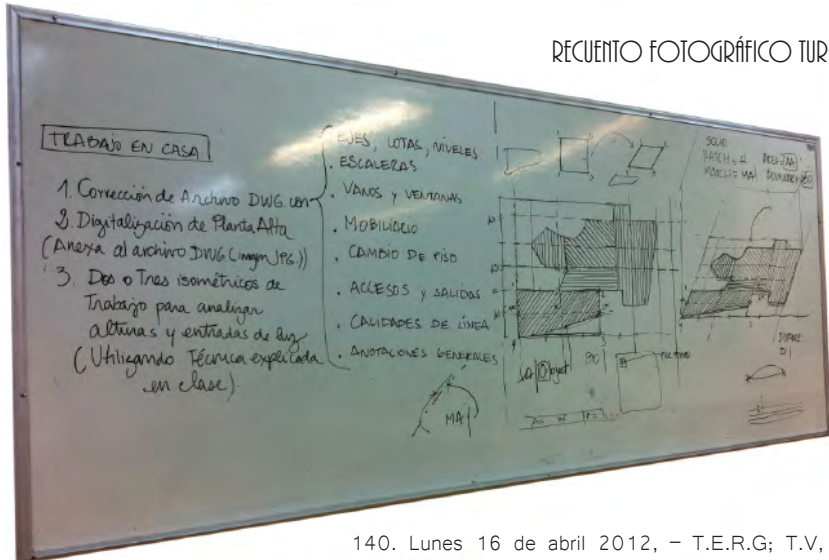 RECUENTO FOTOGRÁFICO TUR
TRABAJO EN CASA
1. Corrección de Archivo DWG con
2. Digitalización de Planta Alta
(Anexa al archivo DWG (imagen JPG.))
3. Dos o Tres isométricos de
Trabajo para analizar
alturas y entradas de luz
(Utilizando Técnica explicada
en clase)
EJES, COTAS, NIVELES
. ESCALERAS
. VANOS y VENTANAS
. MOBILIARIO
. CAMBIO DE PISO
. ACCESOS y SALIDAS
. CALIDADES DE LÍNEA
. ANOTACIONES GENERALES
MA
SOLID
HATCH = H
140. Lunes 16 de abril 2012, – T.E.R.G; T.V,